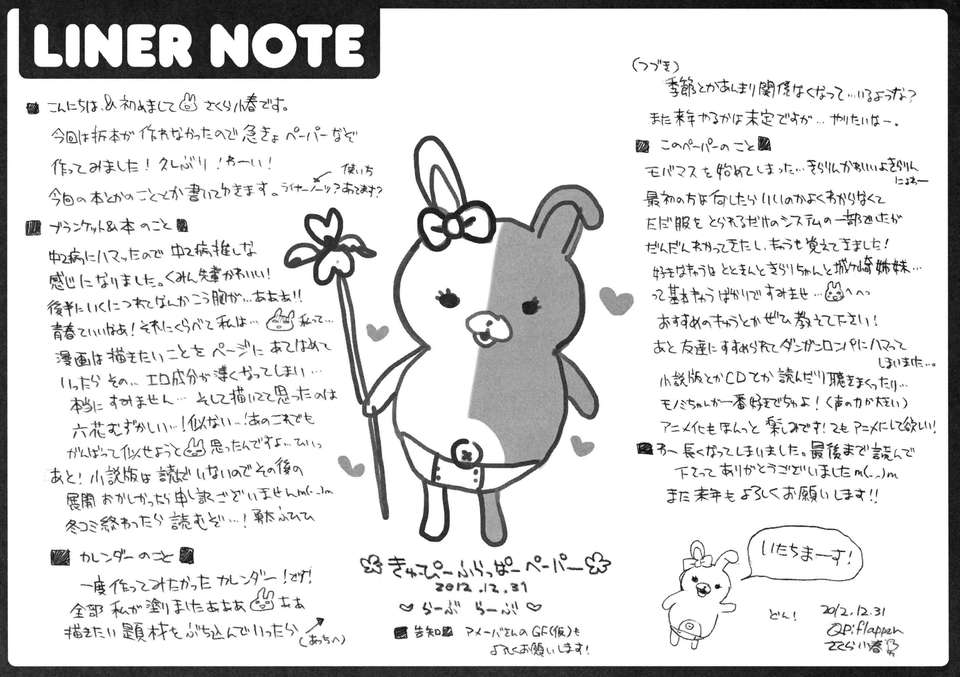 LINER NOTE
■ こんにちは、&初めまして さくら小春です。
今回は折本が作れなかったので急きょペーパーなぞ
作ってみました！久しぶり！わーい！
使いち
今回の本とかのこととか書いてゆきます。ライナーノーツ？あてます？
■ ブランケット&本のこと ■
中2病にハマったので中2病推しな
感じになりました。くみん先輩かわいい！
後半にいくにつれてなんかこう胸が…あああ!!
青春ていいなあ！それにくらべて私は… 私って…
漫画は描きたいことをページにあてはめて
いったらその…エロ成分が薄くなってしまい…
本当にすみません… そして描いてて思ったのは
六花むずかしい…！似ない…！あのこれでも
がんばって似せようと 思ったんですよ…
あと！小説版は読んでいないのでその後の
展開おかしかったら申し訳ございませんm(_ _)m
冬コミ終わったら読むぞ…！
■ カレンダーのこと ■
一度作ってみたかったカレンダー！です！
全部私が塗りましたあああ ああ
描きたい題材をぶち込んでいったら
(あっちへ)
きゅーぴーふらっぱーペーパー
2012.12.31
らーぶ らーぶ
■告知■ アメーバさんのGF(仮)も
よろしくお願いします！
(つづき)
季節とかあんまり関係なくなって…いるような？
また来年やるかは未定ですが…やりたいなー。
■ このペーパーのこと ■
モバマスを始めてしまった…きらりんかわいいよきらりん
によわー
最初の方は何したらいいのかよくわからなくて
ただ服をとられるだけのシステムの一部でしたが
だんだんわかってきたし、きゃらも覚えてきました！
好きなきゃらはとときんときらりちゃんと城ヶ崎姉妹…
って基本きゃらばかりですみませ… へへっ
おすすめのきゃらとかぜひ教えて下さい！
あと友達にすすめられてダンガンロンパにハマって
しまいました…。
小説版とかCDとか読んだり聴きまくったり…
モノミちゃんが一番好きでちゅよ！(声の力が大きい)
アニメ化もほんっと楽しみです！2もアニメにして欲しい！
■ わー長くなってしまいました。最後まで読んで
下さってありがとうございましたm(_ _)m
また来年もよろしくお願いします!!
いたちまーす！
どん！
2012.12.31
QP:flapper
さくら小春